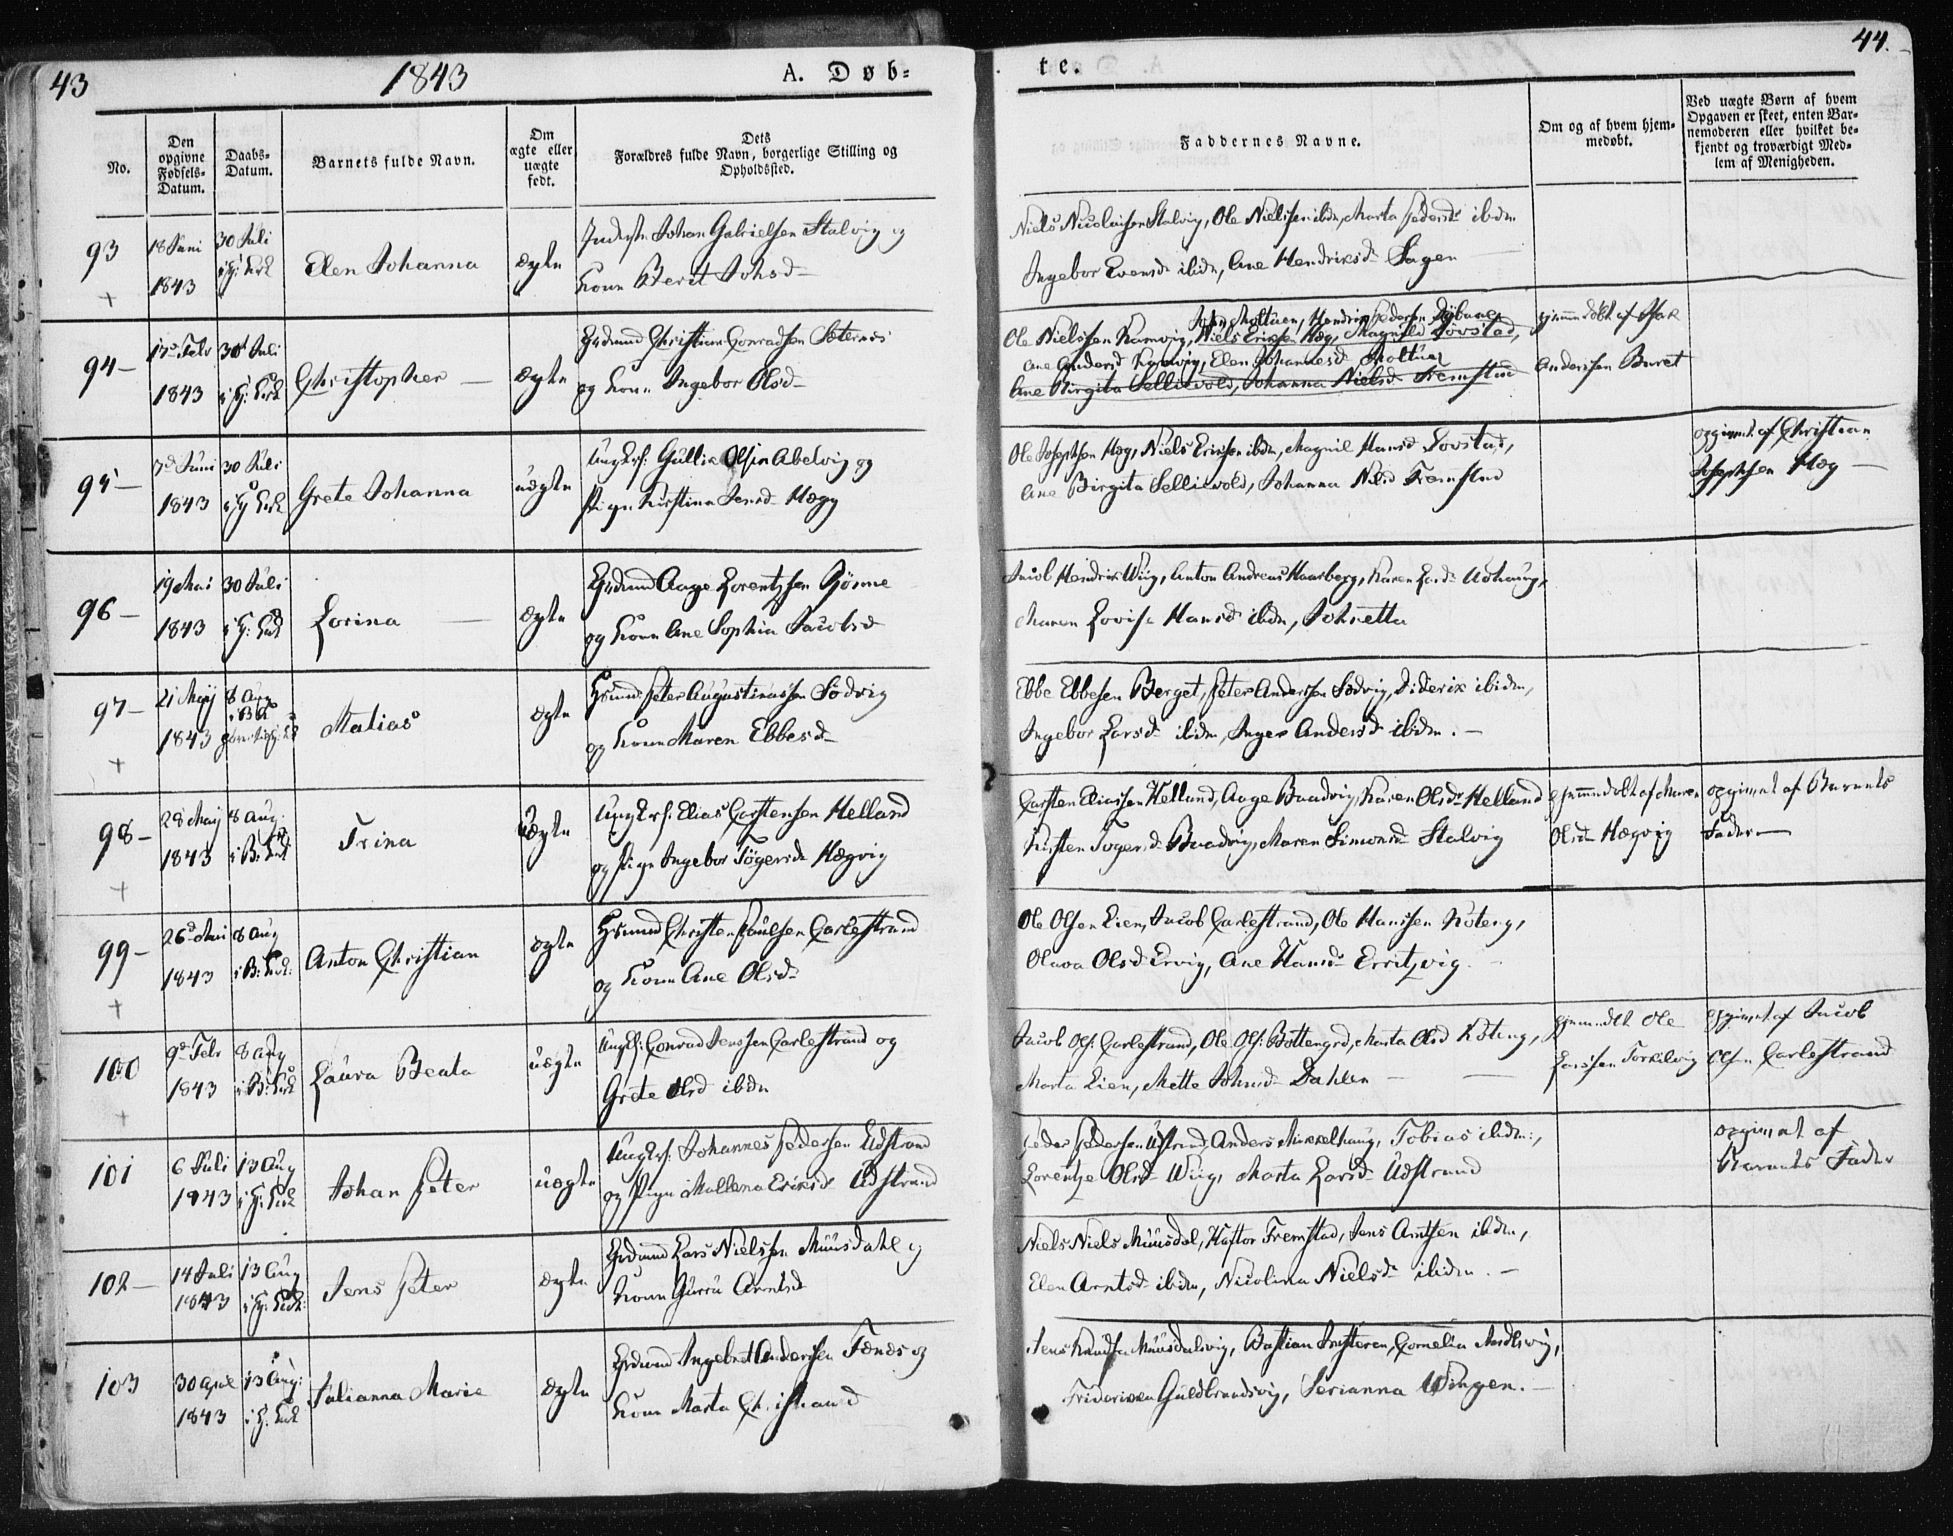 43
1843
A. Døb-
te.
44.
No.
Den opgivne Fødsels-Datum.
Daabs-Datum.
Barnets fulde Navn.
Om ægte eller uægte født.
Dets Forældres fulde Navn, borgerlige Stilling og Opholdssted.
Faddernes Navne.
Om og af hvem hjem-medøbt.
Ved uægte Børn af hvem Opgaven er skeet, enten Bar-nemoderen eller hvilket be-kjendt og troværdigt Med-lem af Menigheden.
93
18 Juni 1843
30 Juli
Elen Johanna
ægte
Johan Gabrielsen Stalvig og
Kone Berit Johsd
Niels Nicolaisen Stalvig, Ole Nielsen ibdm, Marta Pedersd ibdm
Ingebor Evensd ibdm, Ane Hendriksd Hagen
94
17 Febr 1843
30 Juli
Christopher
ægte
Christian Conradsen Sæternes
og Kone Ingebor Olsd
Moltuen, Hendrik Pedersen
Ole Nielssen Ramvig, Niels Eriksen Hæg, Magnild Lovstad,
Ane Andersd, Elen Johannesd Moltuen
Ane Birgita Sellievold, Johanna Nielsd Fremstad
hjemmedøbt af Isak
Anderssen Buret
95
7 Juni 1843
30 Juli
Grete Johanna
uægte
Ungkrl: Gullik Olsen Abelvig og
Pige Kirstine Jensd Hæg
Ole Josephsen Hæg, Niels Eriksen ibdm, Magnil Hansd Lovstad,
Ane Birgita Sellievold, Johanna Nielsd Fremstad
opgivet af Christian
Josephsen Hæg
96
19 Mai 1843
30 Juli
Lorina
ægte
Aage Lorentzsen Gjørme
og Kone Ane Sophia Jacobsd
Jacob Hendrik Wiig, Anton Andreas Haarberg, Karen Larsd Udhaug,
Maren Lovise Hansd ibdm, Johnetta
97
21 Maij 1843
8 Aug
Malias
ægte
Peter Augustinussen Sødvig
og Kone Maren Ebbesd
Ebbe Ebbesen Berget, Peter Anderssen Sødvig, Diderik ibidm,
Ingebor Larsd ibdm, Inger Andersd ibdm.
98
28 Maij 1843
8 Aug
Trina
uægte
Ungkrl: Elias Carstensen Helland
og Pige Ingebor Tøgersd Hægvig
Carsten Eliassen Helland, Aage Baadvig, Karen Olsdr Helland
Kirsten Togersd Baadvig, Maren Simonsd Stalvig
hjemmedøbt af Maren
Olsd Hægvig
opgivet af Barnets
Fader
99
26 Mai 1843
8 Aug
Anton Christian
ægte
Christen Paulsen Carlestrand
og Kone Ane Olsd
Ole Olsen Lien, Jacob Carlestrand, Ole Hanssen Koteng,
Olava Olsd Ervig, Ane Hansd Erritzvig
100
9 Febr 1843
8 Aug
Laura Beata
uægte
Ungkl: Conrad Jenssen Carlestrand og
Grete Olsd ibdm
Jacob Ols: Carlestrand, Ole Ols: Bottengrd, Marta Olsd Koteng,
Marta Lien, Mette Johnsd Dahlen
hjemmedbt Ole
Larssen Torkilvig
Opgivet af Jacob
Olsen Carlestrand
101
6 Juli 1843
13 Aug
Johan Peter
uægte
Ungkrl: Johannes Pedersen Udstrand
og Pige Mallena Eriksd Udstrand
Peder Pedersen Udstrand, Anders Mikkelhaug, Tobias ibidm:,
Lorentze Olsd Wiig, Marta Larsd Udstrand
opgivet af
Barnets Fader
102
14 Juli 1843
13 Aug
Jens Peter
ægte
Lars Nielssen Muusdahl og
Kone Gurru Arntsd
Niels Niels Muusdal, Haftor Fremstad, Jens Arntsen ibdm,
Elen Arntsd ibdm, Nicolina Nielsd ibidm.
103
30 April 1843
13 Aug:
Julianna Marie
ægte
Ingebrt Anderssen Fænæs og
Kone Marta Christiansd
Jens Knudsen Muusdalsvig, Bastian, Cornelia,
Friderikka Guldbrandsvig, Serianna Wingen.